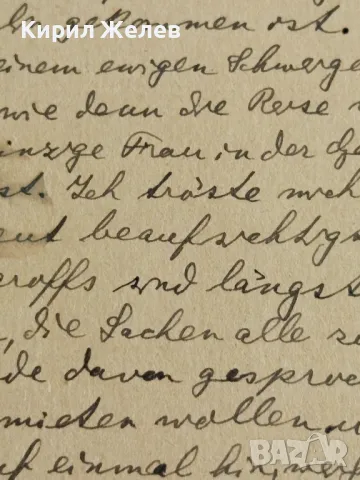 Кирил Желев
gekommen ist.
einem ewigen Schwerge
wie denn die Reise
inzige Frau in der
st. Ich tröste mich
eut beaufsichtigt
eroffs sind längst
, die Sachen alle z
de davon gesproc
mieten wollen, u
uf einmal hinwerf
BAZAR